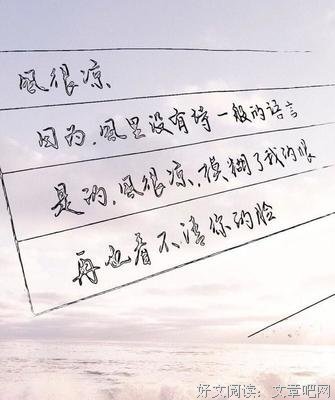 风很凉
因为，风里没有诗一般的语言
是的，风很凉，模糊了我的眼
再也看不清你的脸
好文阅读：文章吧网